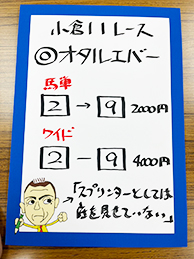 小倉11レース
◎オタルエバー
馬単
2→9 2000円
ワイド
2－9 4000円
→「スプリンターとしては
底を見せていない」